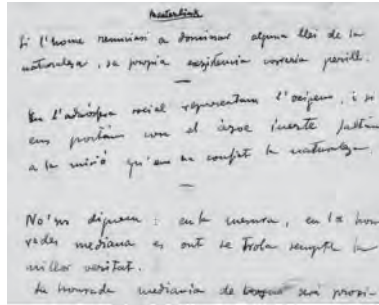 Maeterlinck
Si l'home renunciàs a dominar alguna llei de la
naturalesa, sa propia existencia correria perill.
En l'atmósfera social representam l'oxigeno, i si
ens portám com el àzoe inerte faltám
a la missió qu'ens ha confiat la naturalesa.
No'ns diguem: en la mesura, en la hon
rades mediana es ont se troba sempre la
millor veritat.
La honrada mediania de